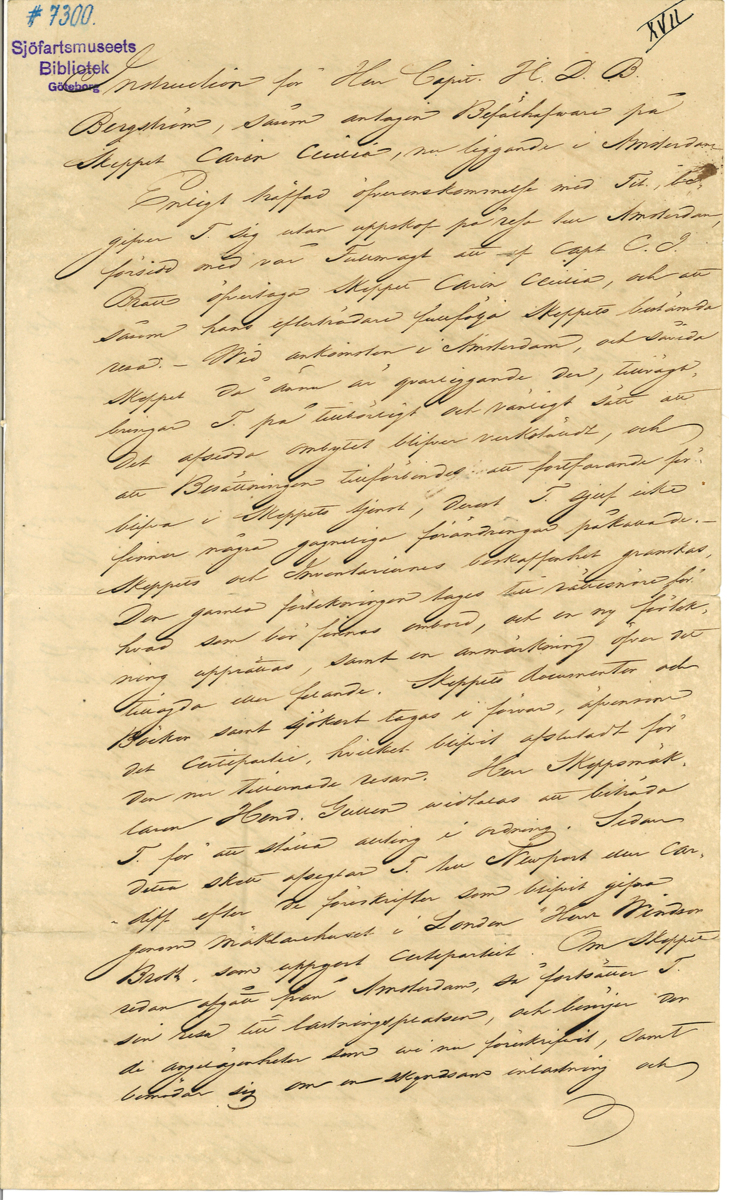 # 7300.
XVII
Sjöfartsmuseets
Bibliotek
Göteborg
Instruction för Herr Capit. H. D. B.
Bergström, såsom antagen Befälhafware på
Skeppet Carin Cecilia, nu liggande i Amsterdam
Enligt träffad öfverenskommelse med Tit., be-
gifver T. sig utan uppskof på resa till Amsterdam,
försedd med vår Fullmagt att af Capt C. J.
Bratt öfvertaga Skeppet Carin Cecilia, och att
såsom hans efterträdare fullfölja Skeppets bestämda
resa. – Wid ankomsten i Amsterdam, och såvida
Skeppet då ännu är qvarliggande der, tillväga-
bringar T. på tillbörligt och vänligt sätt att
det afsedda ombytet blifver verkstäldt, och
att Besättningen tillförbindes att fortfarande för-
blifva i Skeppets tjenst, derest T. sjelf icke
finner några gagneliga förändringar påkallade. –
Skeppets och Inventariernes beskaffenhet granskas,
Den gamla förtekningen tages till rättesnöre för
hvad som bör finnas ombord, och en ny förtek-
ning upprättas, samt en anmärkning öfver det
tillagda eller felande. Skeppets documenter och
Böcker samt sjökort tagas i förvar, äfvensom
det Certepartie, hvilket blifvit afslutadt för
den nu tillernade resan. Herr Skeppsmäk-
laren Hend. Gullen widtalas att biträda
T. för att ställa allting i ordning. Sedan
detta skett afseglar T. till Newport eller Car-
diff efter de föreskrifter som blifvit gifna
genom Mäklarehuset i London Herr Windson
Broth. som uppgjort Certepartiet. Om Skeppet
redan afgått från Amsterdam, så fortsätter T.
sin resa till lastningsplatsen, och börjer der
de angelägenheter som wi nu föreskrifvit, samt
bemödar sig om en skyndsam inlastning och